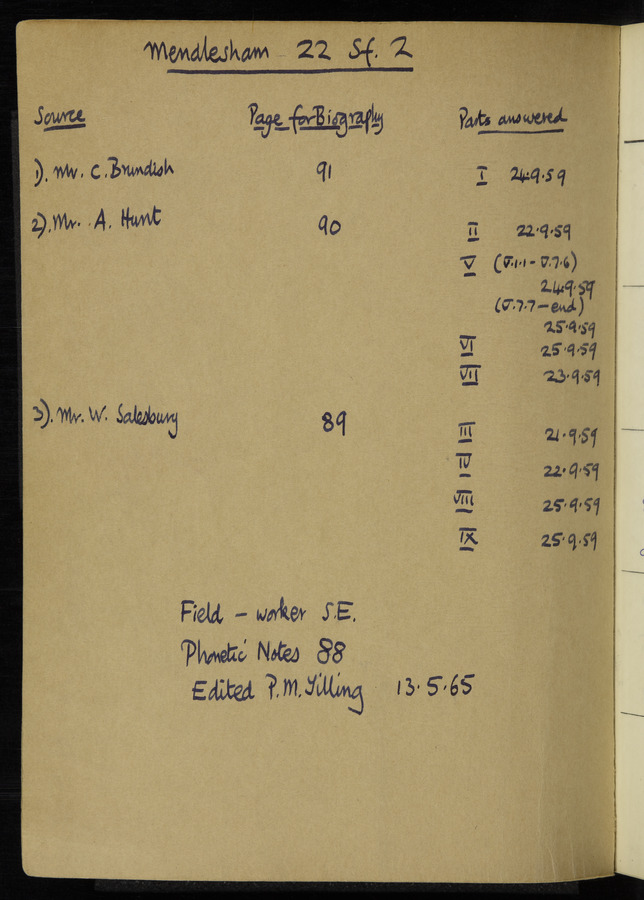 Mendlesham 22 Sf. 2
Source Page for Biography Parts answered
1). Mr. C. Brundish 91 I 24.9.59
2). Mr. A. Hunt 90 II 22.9.59
V (V.1.1 - V.7.6)
24.9.59
(V.7.7 - end)
25.9.59
VI 25.9.59
VII 23.9.59
3). Mr. W. Salesbury 89 III 21.9.59
IV 22.9.59
VIII 25.9.59
IX 25.9.59
Field - worker S.E.
Phonetic Notes 88
Edited P.M. Tilling 13.5.65